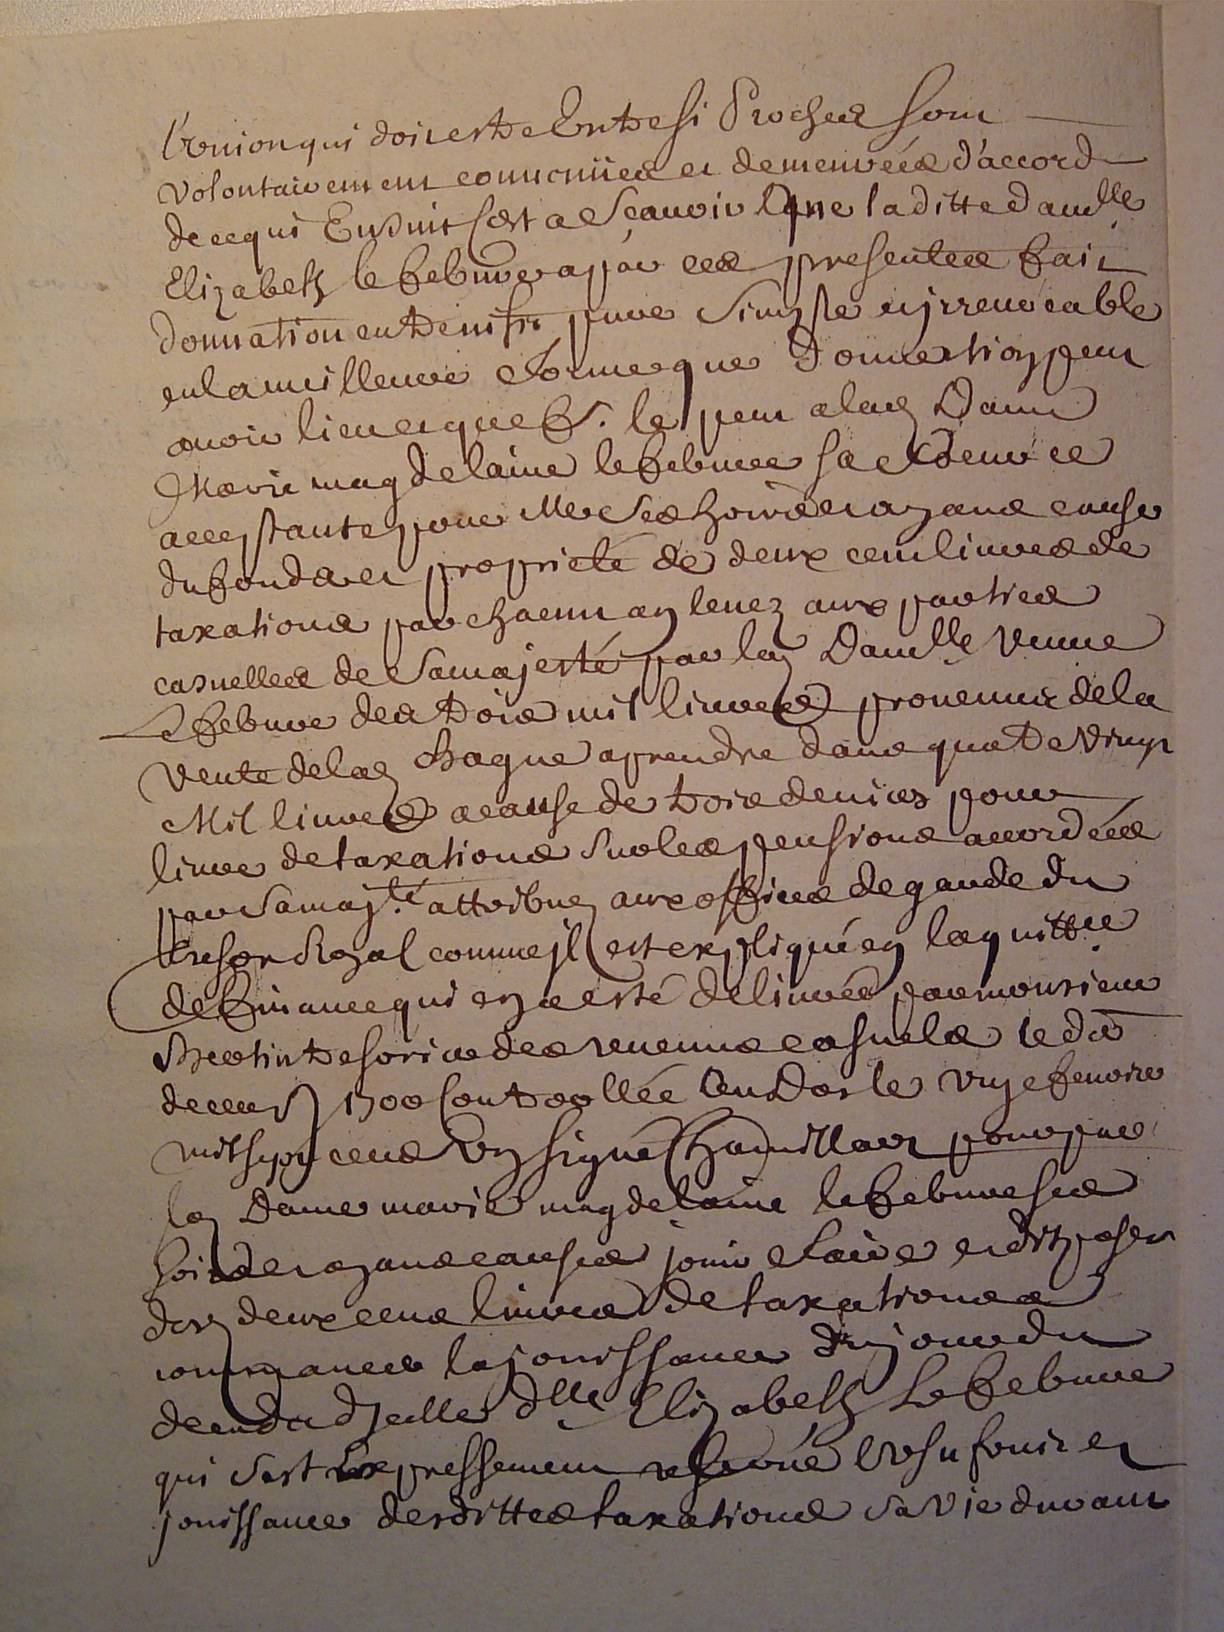 l'union qui doit estre Entre si Proches sont
volontairement convenües et demeurées d'accord
de ce qui Ensuit C'est a Sçavoir Que la ditte damlle
Elizabeth le febuvre a par ces presentes fait
donnation entre vifs pure Simple et jrrevocable
en la meilleure forme que donnation peut
avoir lieu et que f. le peut a lad Dame
Marie magdelaine lefebuvre sa soeur ce
acceptante pour Elle Ses hoirs et ayans cause
du fonds et proprieté de deux cent livres de
taxations par chacun an levez aux parties
casuelles de Sa majesté par lad Damlle veuve
Lefebuvre des trois mil livres provenus de la
vente de lad Bague a prendre dans quatre vingt
Mil livres a cause de trois deniers pour
livre de taxations sur les pensions accordées
par Sa majté attribuez aux offices de garde du
tresor Royal comme jl est expliqué en la quittce
de finance qui en a esté delivrée par monsieur
Bertin tresorier des revenus casuels le
decemb 1700 controllée Au Dos le unze fevrier
mil sept cens Un signé Chamillart pour par
lad Dame marie magdelaine lefebuvre ses
hoirs et ayans causes jouir faire et disposer
desd deux cens livres de taxations a
commancer la jouissance du jour du
deceds d'jcelle dlle Elizabeth Lefebuvre
qui s'est Expressement reservé l'Usufruit et
jouissance desdittes taxations sa vie durant